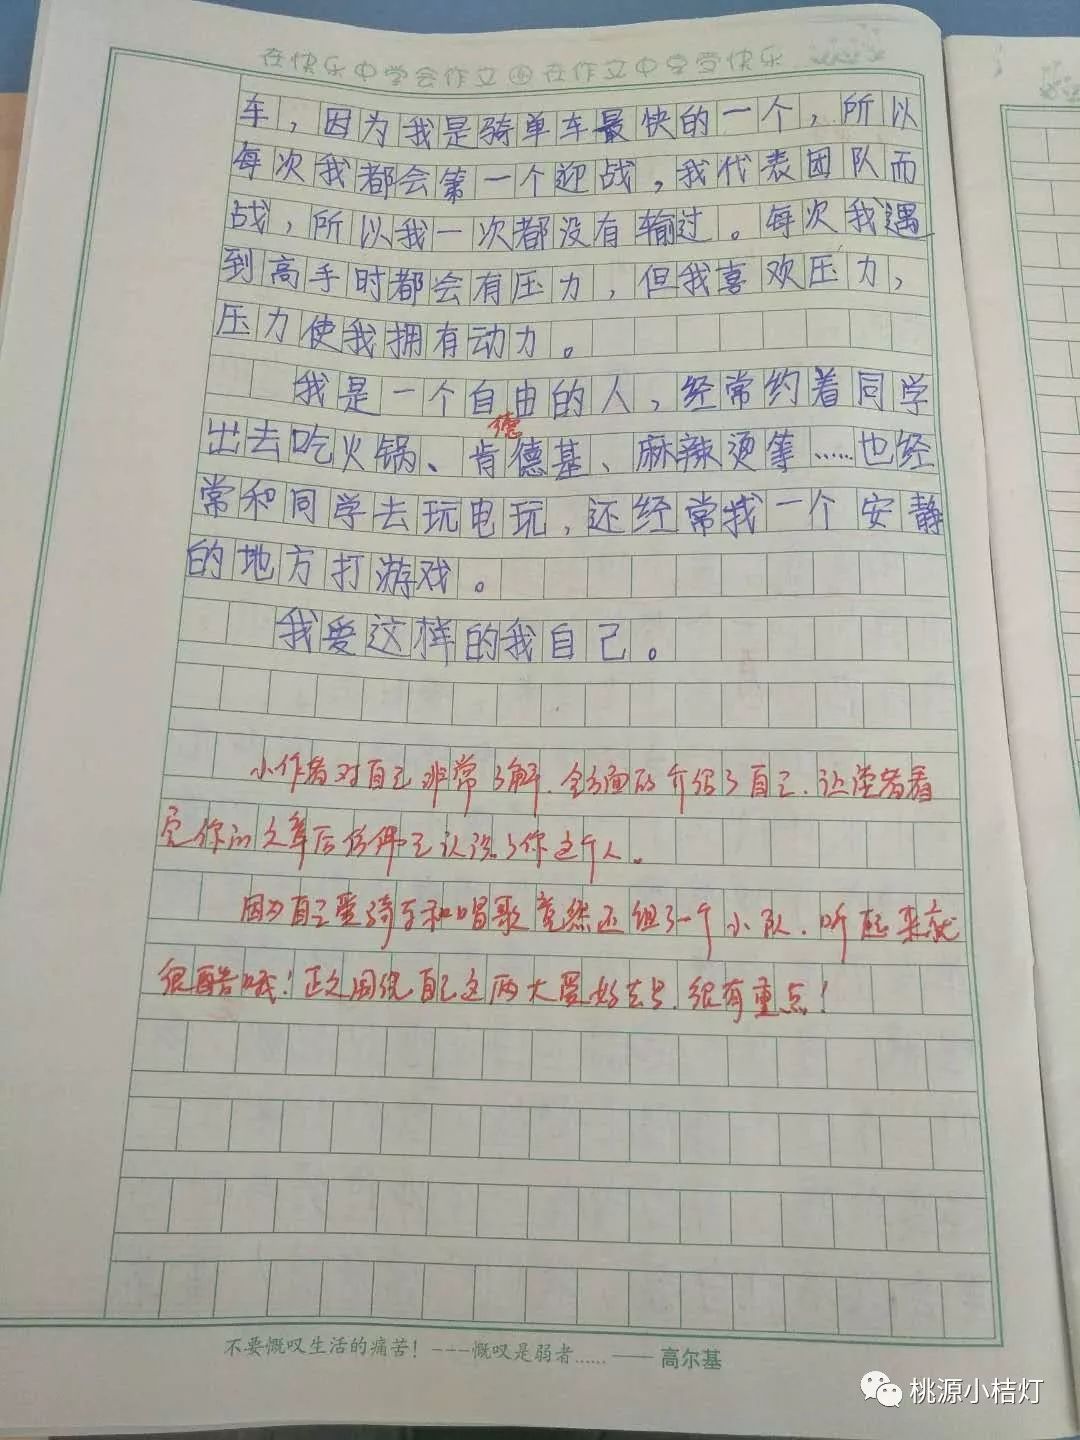 在快乐中学会作文 在作文中享受快乐
车，因为我是骑单车最快的一个，所以
每次我都会第一个迎战，我代表团队而
战，所以我一次都没有输过。每次我遇
到高手时都会有压力，但我喜欢压力，
压力使我拥有动力。
我是一个自由的人，经常约着同学
德
出去吃火锅、肯德基、麻辣烫等……也经
常和同学去玩电玩，还经常找一个安静
的地方打游戏。
我爱这样的我自己。
小作者对自己非常了解，全方面的介绍了自己，让读者看
完你的文章后仿佛已认识了你这个人。
因为自己爱骑车和唱歌竟然还组了一个小队，听起来就
很酷哦！正文围绕自己这两大爱好去写，很有重点！
不要慨叹生活的痛苦！---慨叹是弱者……——高尔基
桃源小桔灯